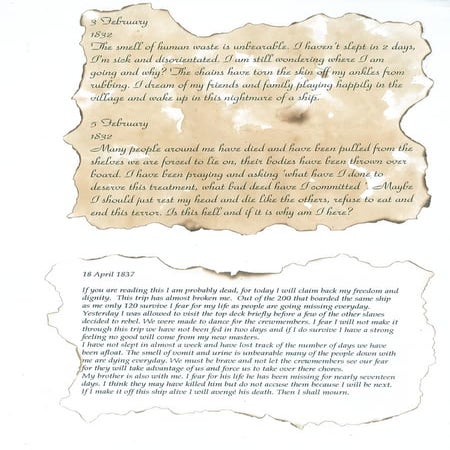 3 February
1832
The smell of human waste is unbearable. I haven't slept in 2 days,
I'm sick and disorientated. I am still wondering where I am
going and why? The chains have torn the skin off my ankles from
rubbing. I dream of my friends and family playing happily in the
village and wake up in this nightmare of a ship.
5 February
1832
Many people around me have died and have been pulled from the
shelves we are forced to lie on, their bodies have been thrown over
board. I have been praying and asking 'what have I done to
deserve this treatment, what bad deed have I committed'. Maybe
I should just rest my head and die like the others, refuse to eat and
end this terror. Is this hell and if it is why am I here?
18 April 1837
If you are reading this I am probably dead, for today I will claim back my freedom and
dignity. This trip has almost broken me. Out of the 200 that boarded the same ship
as me only 120 survive I fear for my life as people are going missing everyday.
Yesterday I was allowed to visit the top deck briefly before a few of the other slaves
decided to rebel. We were made to dance for the crewmembers. I fear I will not make it
through this trip we have not been fed in two days and if I do survive I have a strong
feeling no good will come from my new masters.
I have not slept in almost a week and have lost track of the number of days we have
been afloat. The smell of vomit and urine is unbearable many of the people down with
me are dying everyday. We must be brave and not let the crewmembers see our fear
for they will take advantage of us and force us to take over there chores.
My brother is also with me. I fear for his life he has been missing for nearly seventeen
days. I think they may have killed him but do not accuse them because I will be next.
If I make it off this ship alive I will avenge his death. Then I shall mourn.